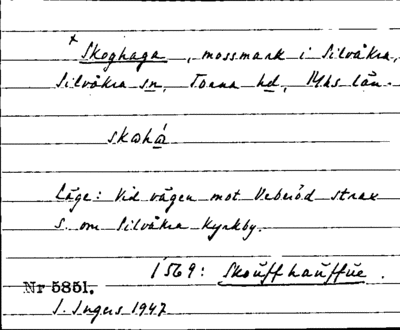 x Skoghaga, mossmark i Silvåkra,
Silvåkra sn, Torna hd, Mhs län.
skωhá
Läge: Vid vägen mot Veberöd strax
S. om Silvåkra kyrkby.
1569: Skouffhauffue.
Nr 5851.
I. Ingers 1947